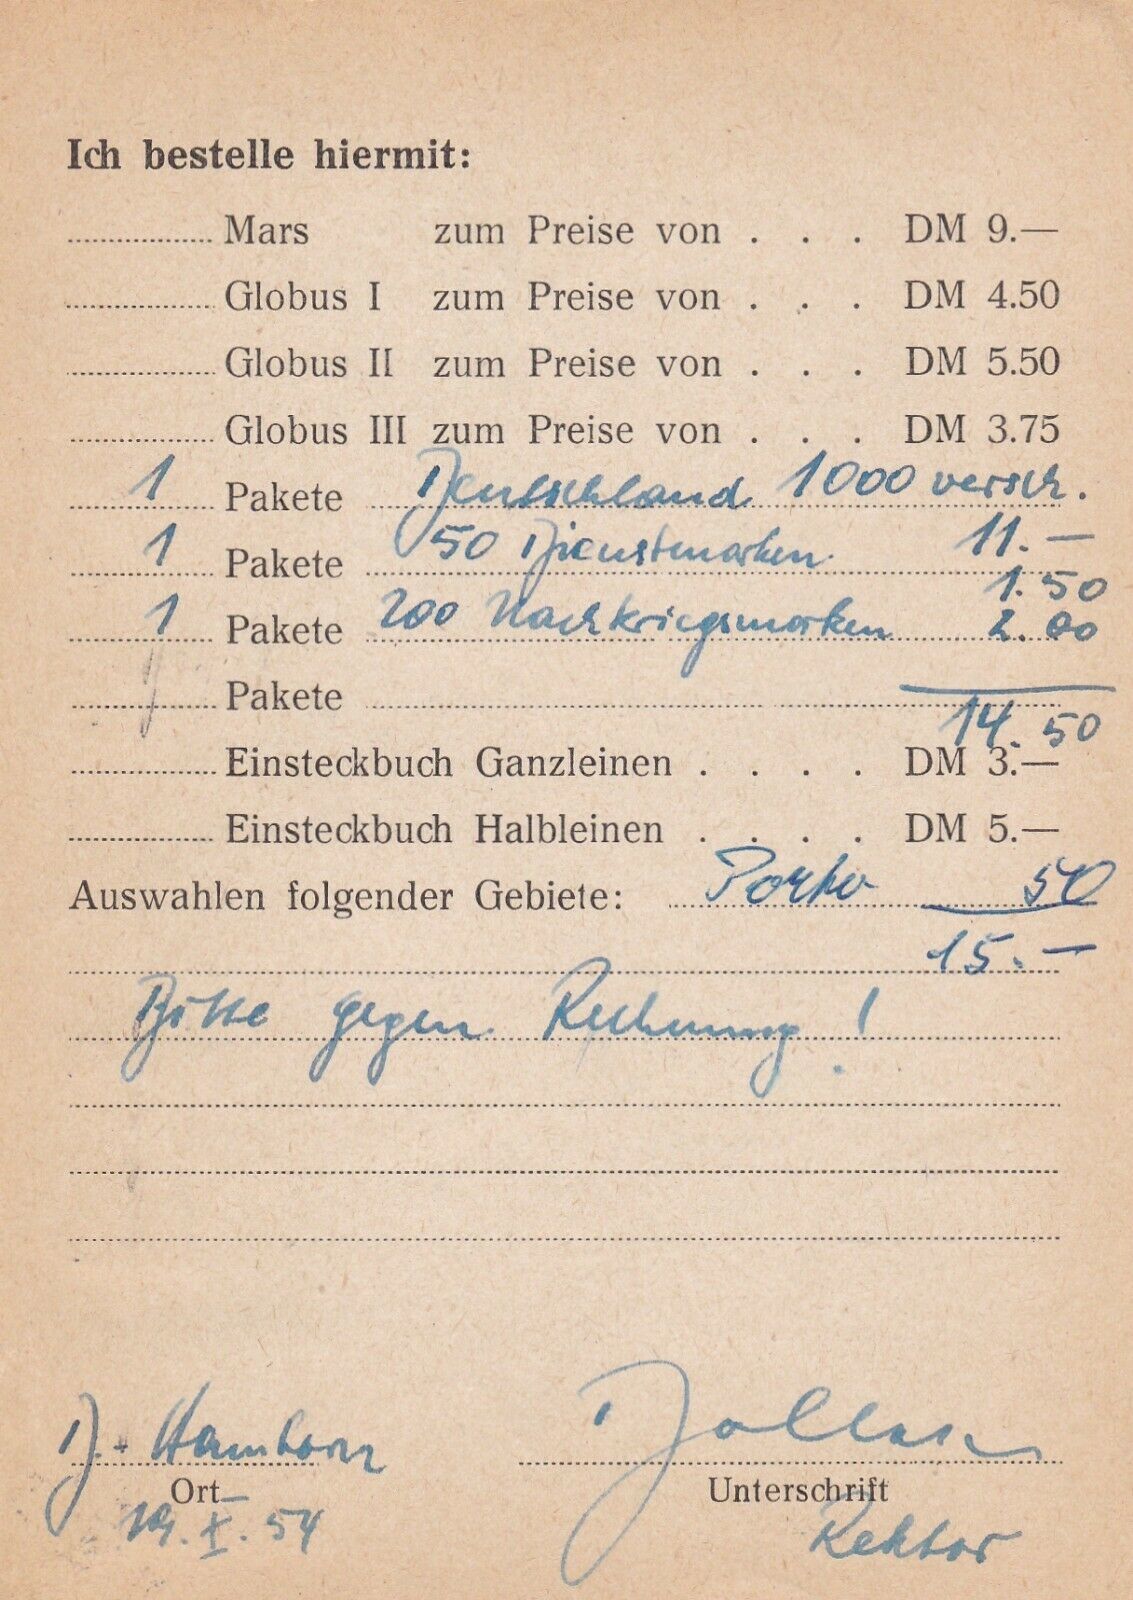 Ich bestelle hiermit:
Mars zum Preise von . . . DM 9.—
Globus I zum Preise von . . . DM 4.50
Globus II zum Preise von . . . DM 5.50
Globus III zum Preise von . . . DM 3.75
1 Pakete Deutschland 1000 versch.
11.—
1 Pakete 50 Dienstmarken
1.50
1 Pakete 200 Nachkriegsmarken 2.00
Pakete
14.50
Einsteckbuch Ganzleinen . . . . DM 3.—
Einsteckbuch Halbleinen . . . . DM 5.—
Auswahlen folgender Gebiete: Porto 50
15.—
Bitte gegen Rechnung!
D.-Hamborn
Ort Unterschrift
19.X.54 Rektor